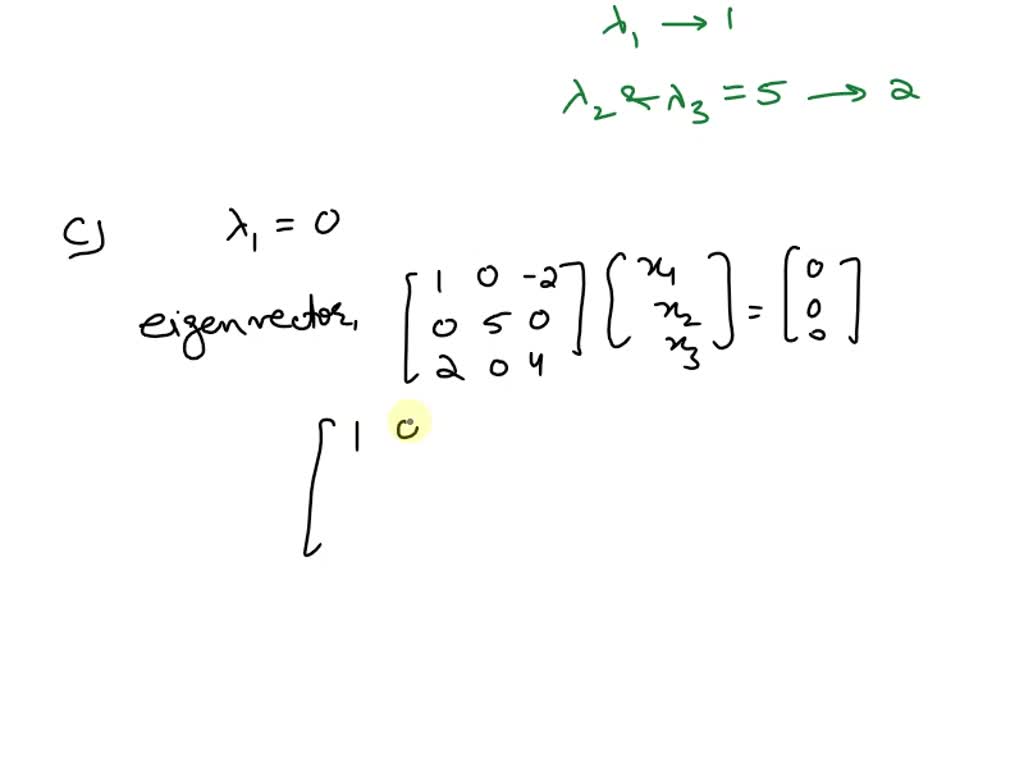 λ₁ → 1
λ₂ & λ₃ = 5 → 2
C) λ₁ = 0
eigenvector, [1 0 -2; 0 5 0; 2 0 4] [x₁; x₂; x₃] = [0; 0; 0]
[1 0